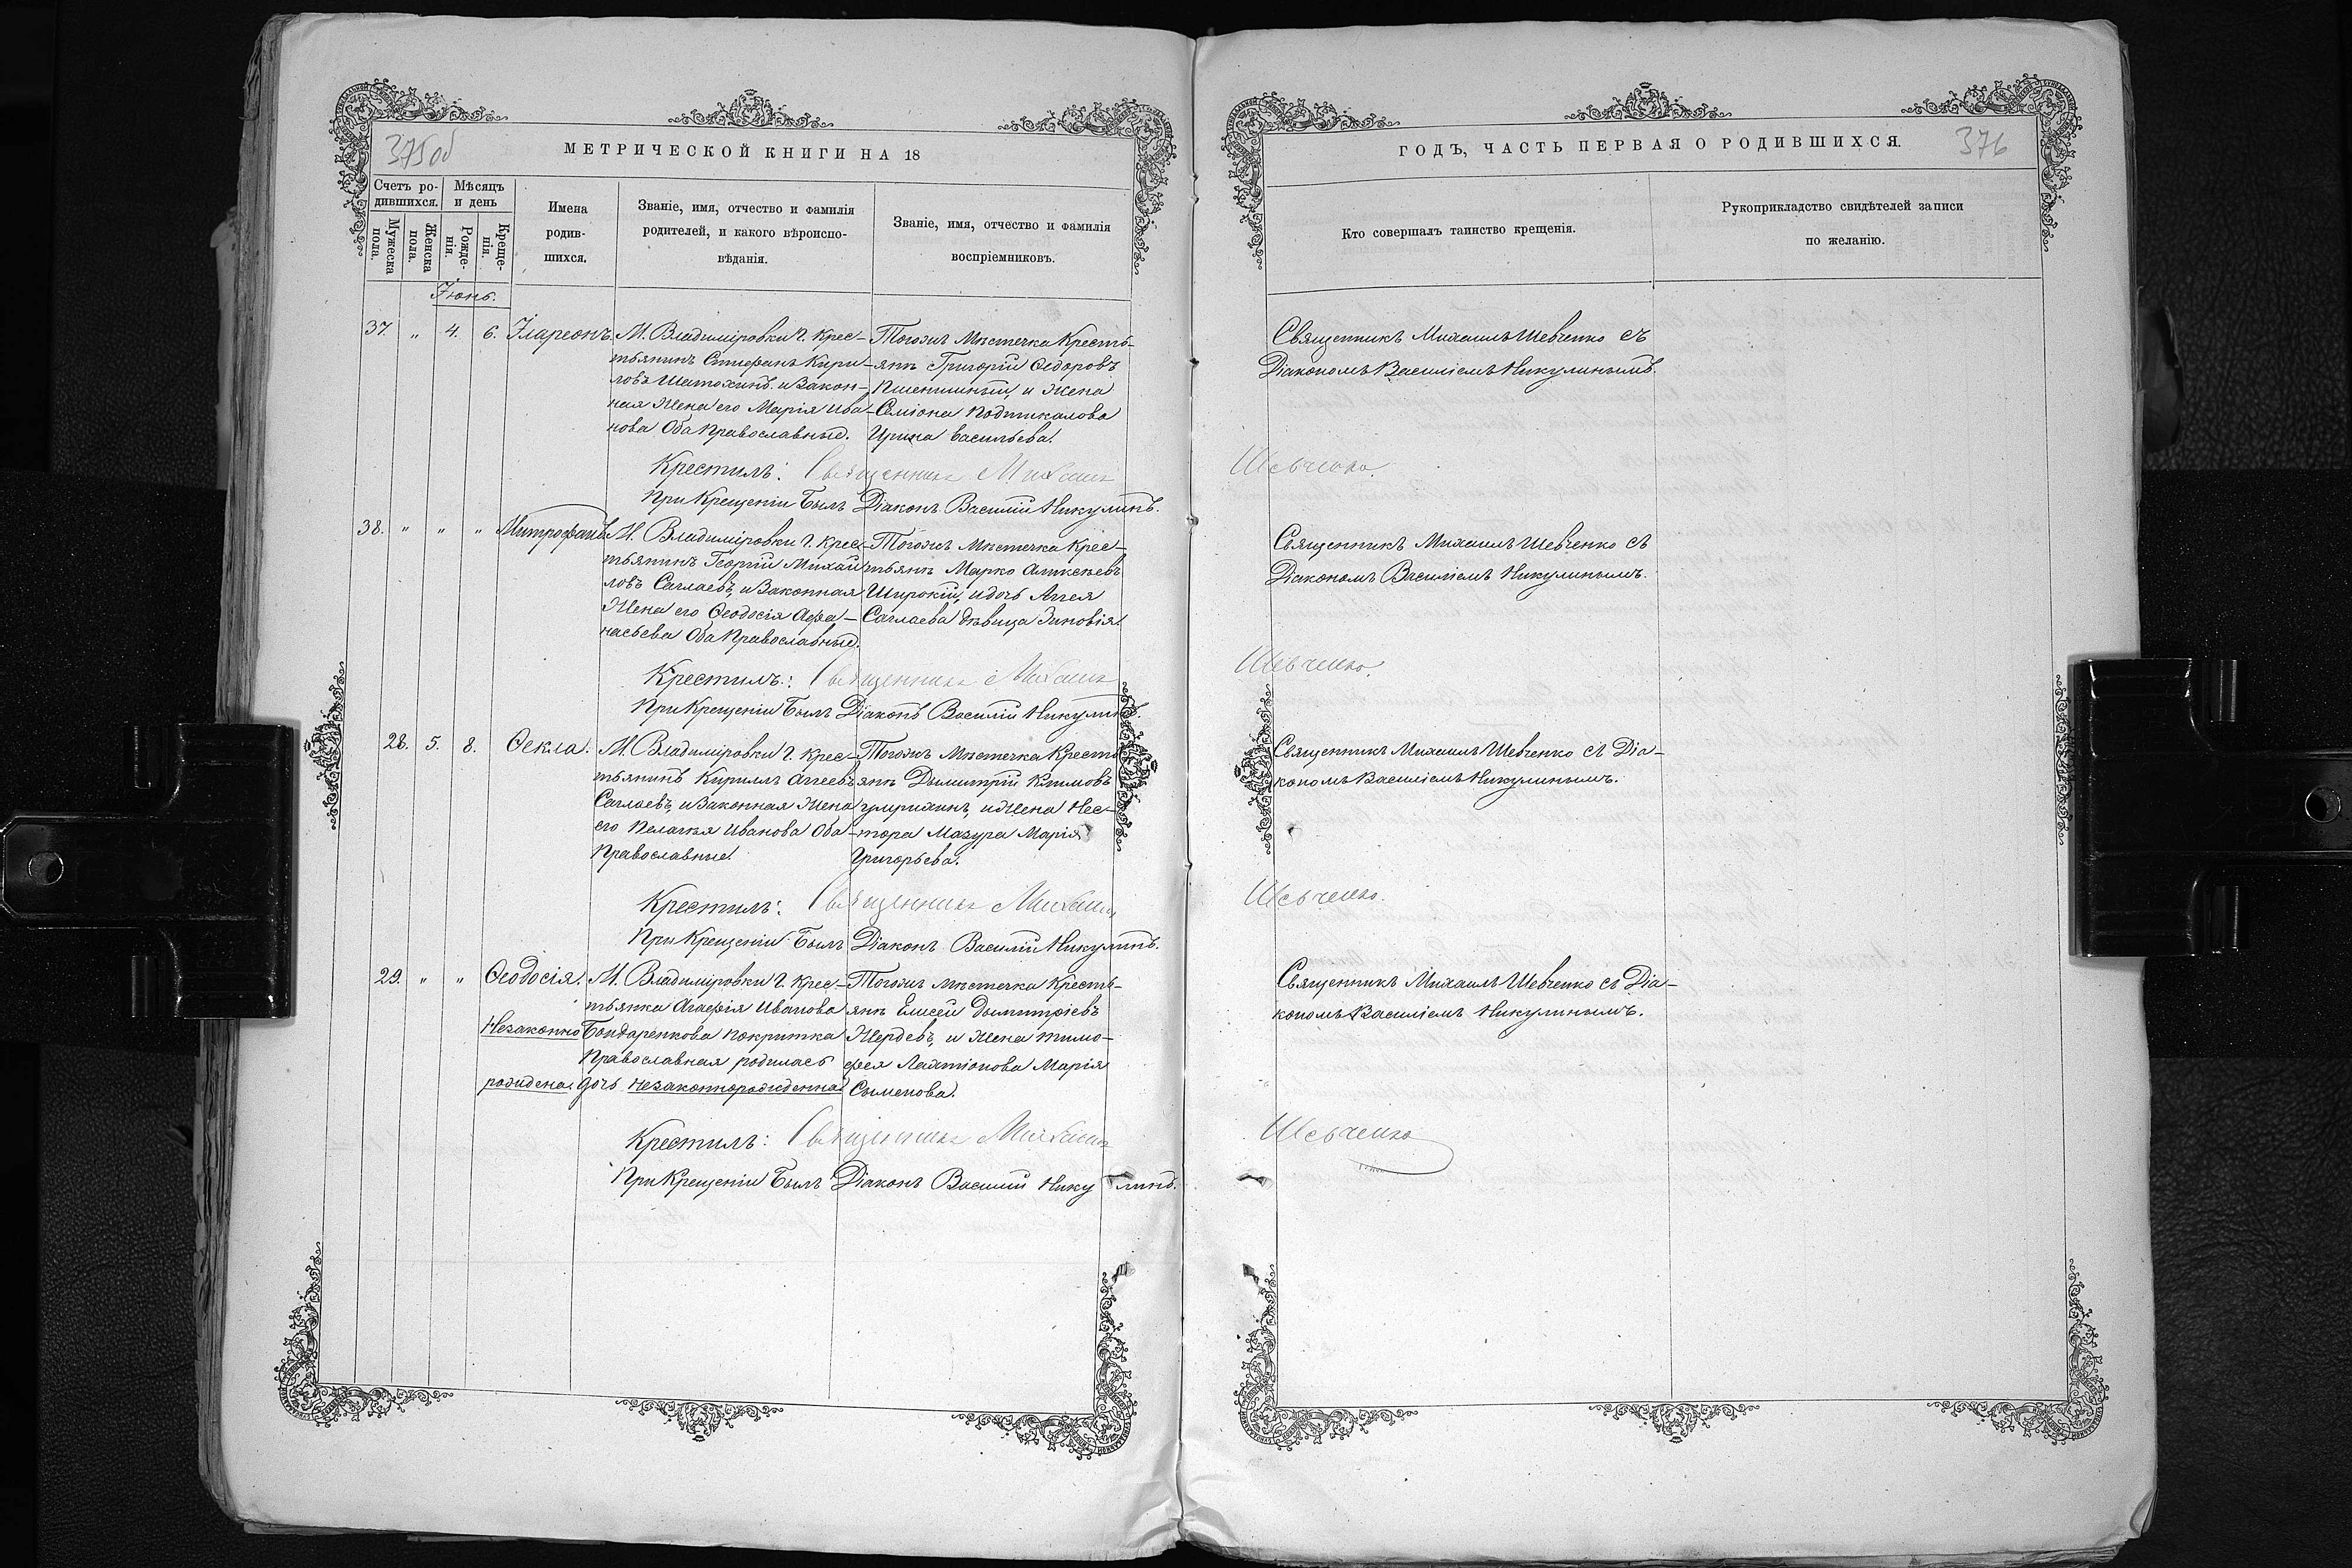 375 об
МЕТРИЧЕСКОЙ КНИГИ НА 18
Счетъ ро-
дившихся.
Мѣсяцъ
и день
Мужеска
пола.
Женска
пола.
Рожде-
нія.
Креще-
нія.
Имена
родив-
шихся.
Званіе, имя, отчество и фамилія
родителей, и какого вѣроиспо-
вѣданія.
Званіе, имя, отчество и фамилія
воспріемниковъ.
Іюнь.
37. „ 4. 6. Іларіонъ.
М. Владиміровки Г. Крес-
тьянинъ Стефанъ Кири-
ловъ и Закон-
ная Жена его Марія Ива-
нова Оба Православные.
Тогожъ Мѣстечка Кресть-
янъ Григорій Ѳедоровъ
Пшеничный, и Жена
Семіона Подтикалова
Ирина Васильева.
Крестилъ: Священникъ Михаилъ
При Крещеніи Былъ Діаконъ Василій Никулинъ.
38. „ „ „ Митрофанъ
М. Владиміровки Г. Крес-
тьянинъ Георгій Михаи
ловъ Саглаевъ, и Законная
Жена его Ѳеодосія Афа-
насьева Оба Православные.
Тогожъ Мѣстечка Крес-
тьянъ Марко Алексѣевъ
Широкій, и дочь Аггея
Саглаева дѣвица Зиновія.
Крестилъ: Священникъ Михаилъ
При Крещеніи Былъ Діаконъ Василій Никулинъ.
28. 5. 8. Ѳекла.
М. Владиміровки Г. Крес-
тьянинъ Кириллъ Аггеевъ
Саглаевъ, и Законная Жена
его Пелагея Иванова Оба
Православные.
Тогожъ Мѣстечка Кресть
янъ Дымитрій Климовъ
и Жена Нес-
тора Мазура Марія
Григорьева.
Крестилъ: Священникъ Михаилъ
При Крещеніи Былъ Діаконъ Василій Никулинъ.
29. „ „ Ѳеодосія.
Незаконно
рождена.
М. Владиміровки Г. Крес-
тьянка Агафія Иванова
Бондаренкова покритка
Православная родилась
дочь Незаконнорожденна
Тогожъ Мѣстечка Кресть-
янъ Елисей Дымитріевъ
Жердевъ, и Жена Тимо-
фея Лактіонова Марія
Сыменова.
Крестилъ: Священникъ Михаилъ
При Крещеніи Былъ Діаконъ Василій Никулинъ.
ГОДЪ, ЧАСТЬ ПЕРВАЯ О РОДИВШИХСЯ.
376
Кто совершалъ таинство крещенія.
Рукоприкладство свидѣтелей записи
по желанію.
Священникъ Михаилъ Шевченко съ
Діакономъ Василіемъ Никулинымъ.
Шевченко.
Священникъ Михаилъ Шевченко съ
Діакономъ Василіемъ Никулинымъ.
Шевченко.
Священникъ Михаилъ Шевченко съ Діа-
кономъ Василіемъ Никулинымъ.
Шевченко.
Священникъ Михаилъ Шевченко съ Діа-
кономъ Василіемъ Никулинымъ.
Шевченко